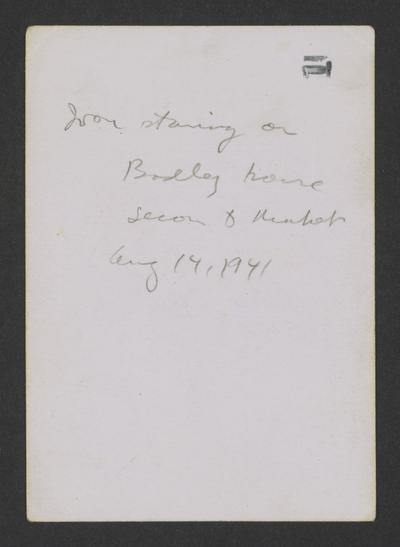 Iron on
Bodley house
Second & Market
Aug 14, 1941